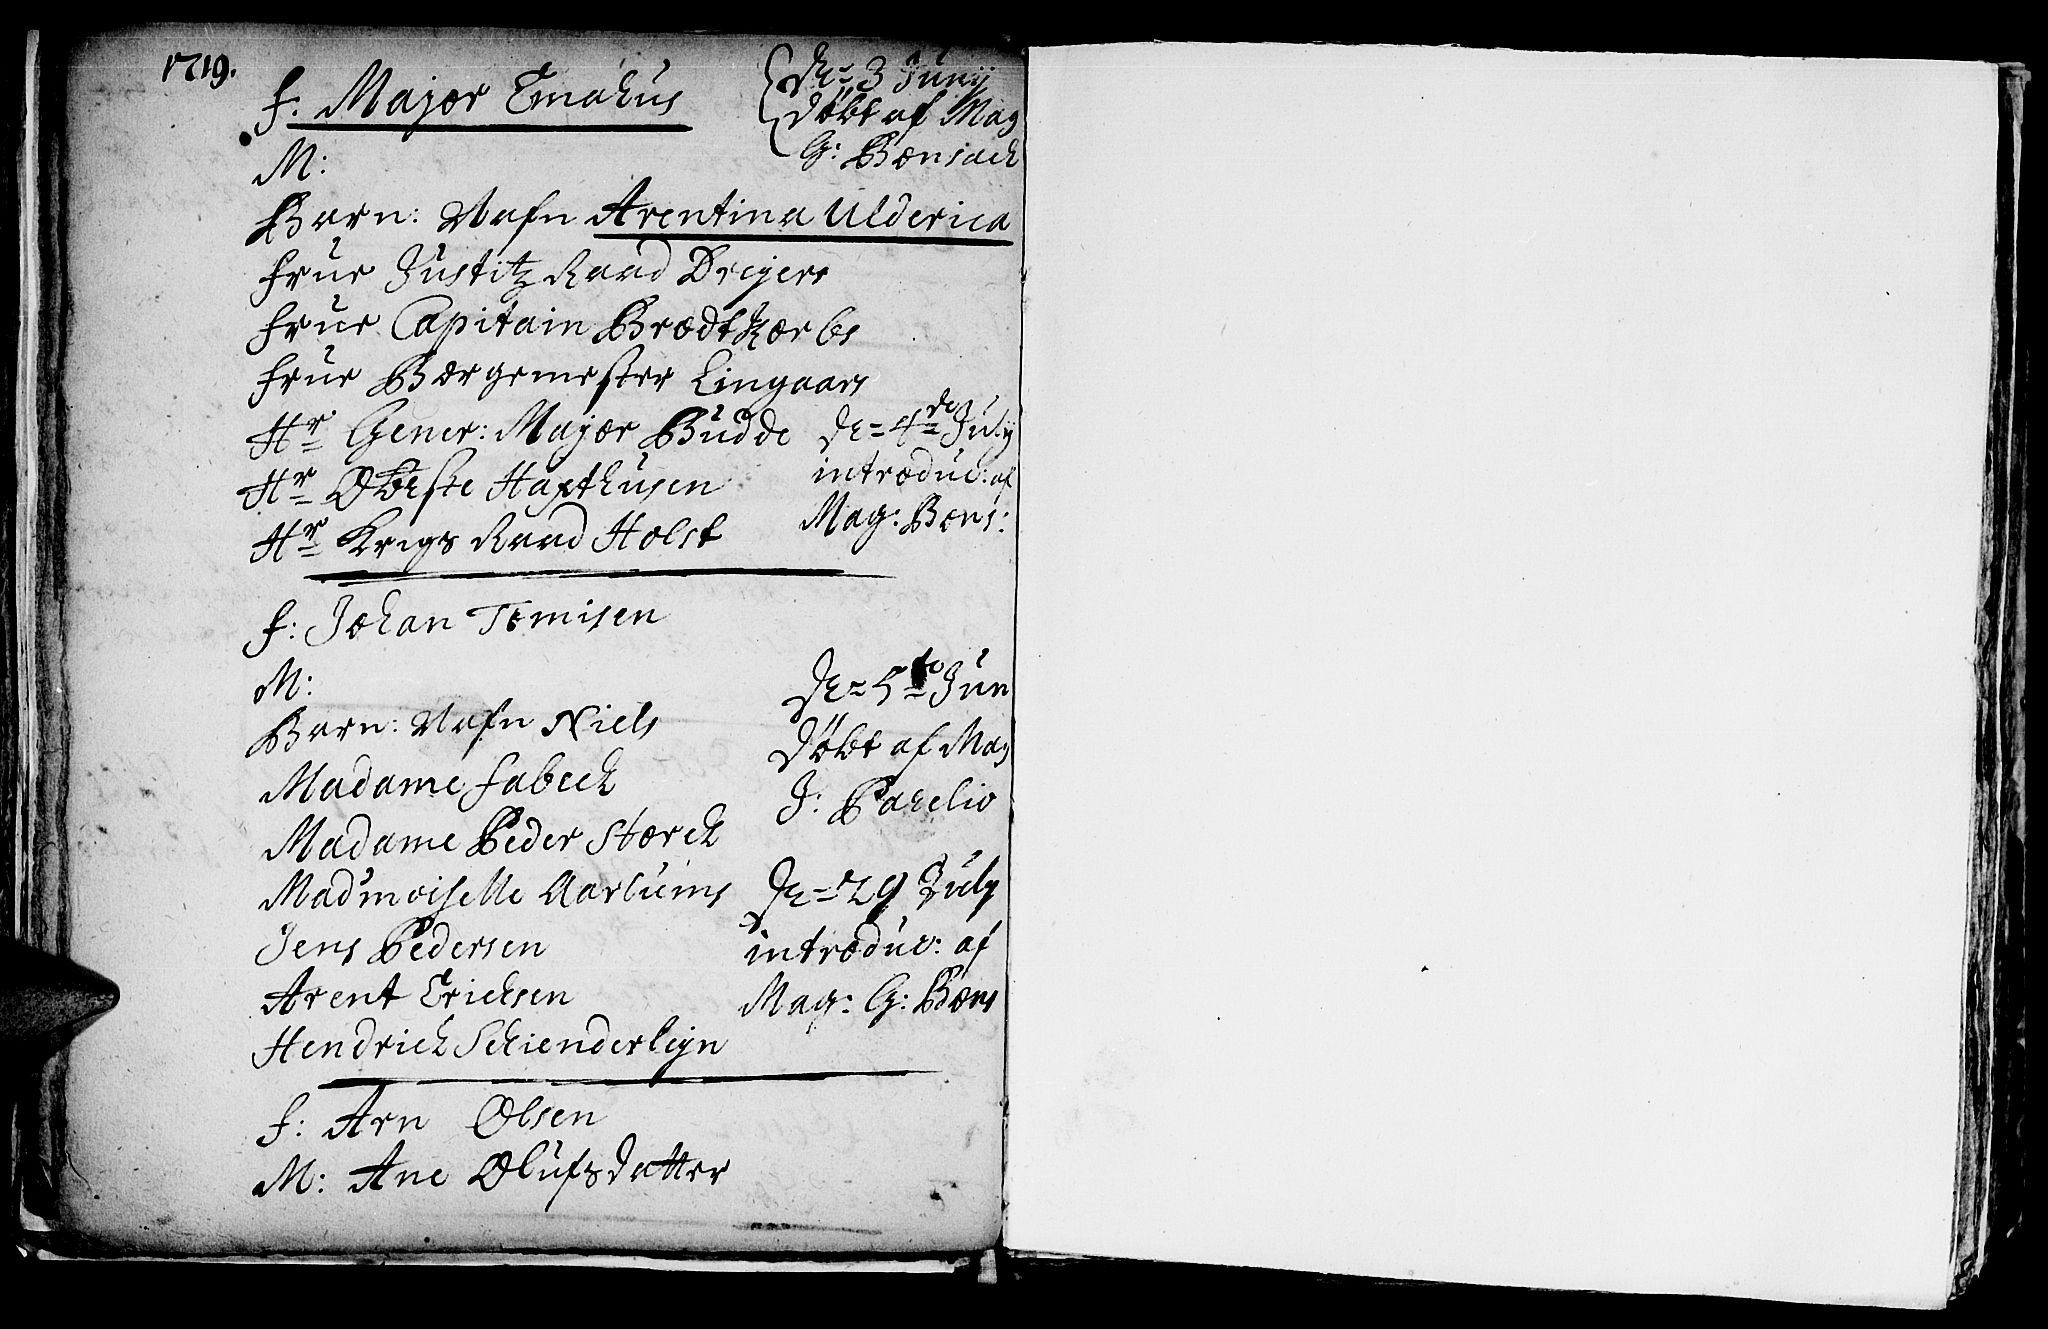 1719.
F: Major Emahus
M:
Barn: Nafn Arentina Ulderica
Frue Justitz Raad Dreyers
Frue Capitain Brodtkorbs
Frue Borgemester Lingaars
Hr Gener: Major Budde
Hr Obrste Haxthusen
Hr Krigs Raad Holst
De= 3 Junij
döbt af Mag
G: Bonsach
De= 4de July
introduc: af
Mag: Bons:
F: Johan Tomisen
M:
Barn: Nafn Niels
Madame Fabech
Madame Peder Storch
Madmoiselle Aarbums
Jens Pedersen
Arent Erichsen
Hendrich Schienderleyn
De= 5to Jun
döbt af Mag
J: Parelio
De= 29 July
introduc: af
Mag: G: Bons
F: Arn Olsen
M: Ane Olufsdatter